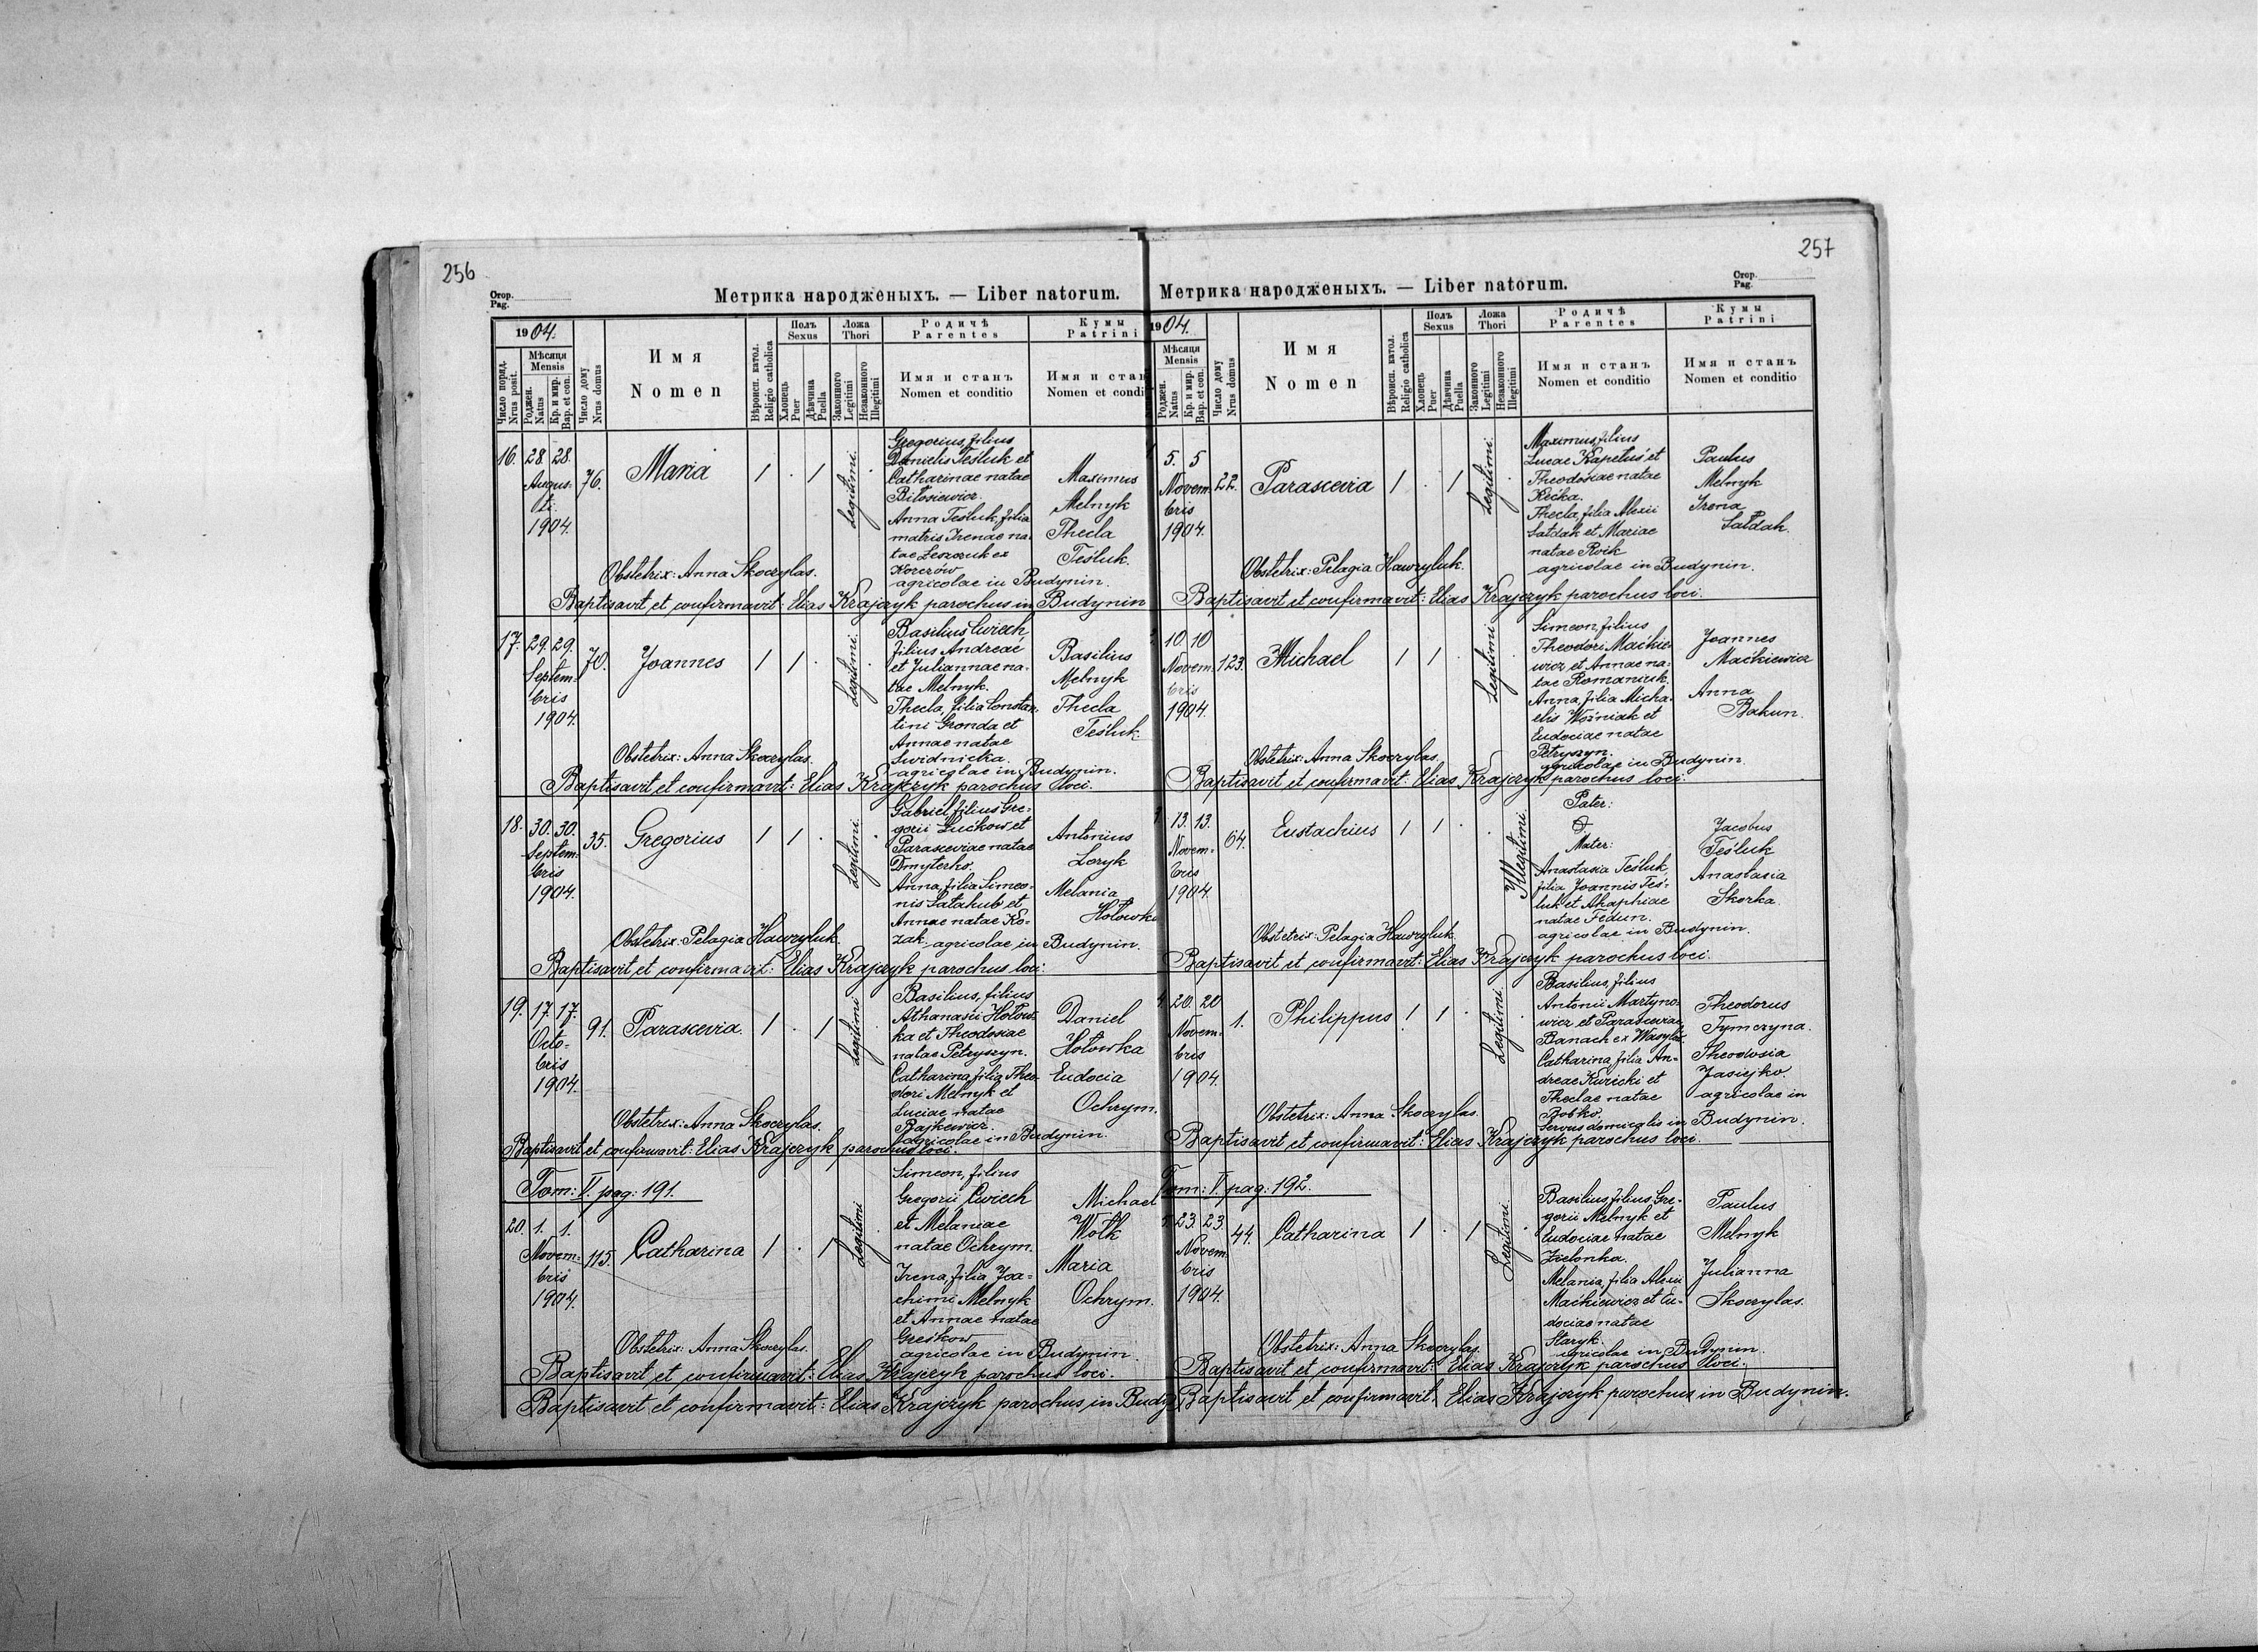 256
Стор.
Pag.
Метрика народженыхъ. — Liber natorum.
1904.
Число поряд.
Nrus posit.
Мѣсяця
Mensis
Роджен.
Natus
Кр. и мир.
Bap. et con.
Число дому
Nrus domus
Имя
Nomen
Вѣроисп. катол.
Religio catholica
Полъ
Sexus
Хлопець
Puer
Дѣвчина
Puella
Ложа
Thori
Законного
Legitimi
Незаконного
Illegitimi
Родичѣ
Parentes
Имя и станъ
Nomen et conditio
Кумы
Patrini
Имя и стан
Nomen et condit
16. 28. 28.
Augus-
ti
1904.
76.
Maria
1 . 1
Legitimi.
Gregorius, filius
Danielis Teśluk et
Catharinae natae
Biłosiewicz.
Anna Teśluk, filia
matris Irenae na-
tae Leszczuk ex
Korczów
agricolae in Budynin.
Maximus
Melnyk
Thecla
Teśluk.
Obstetrix: Anna Skoczylas.
Baptisavit et confirmavit: Elias Krajczyk parochus in Budynin
17. 29. 29.
Septem-
bris
1904.
70.
Joannes
1 1 .
Legitimi.
Basilius Cwiech,
filius Andreae
et Juliannae na-
tae Melnyk.
Thecla, filia Constan-
tini Gronda et
Annae natae
Swidnicka.
agricolae in Budynin.
Basilius
Melnyk
Thecla
Teśluk.
Obstetrix: Anna Skoczylas.
Baptisavit et confirmavit: Elias Krajczyk parochus loci.
18. 30. 30.
Septem-
bris
1904.
35.
Gregorius
1 1 .
Legitimi.
Gabriel, filius Gre-
gorii Łućkow et
Parasceviae natae
Dmyterko.
Anna, filia Simeo-
nis Sałahub et
Annae natae Ko-
zak. agricolae in Budynin.
Antonius
Loryk
Melania
Hołowka
Obstetrix: Pelagia Hawryluk.
Baptisavit et confirmavit: Elias Krajczyk parochus loci.
19. 17. 17.
Octo-
bris
1904.
91.
Parascevia
1 . 1
Legitimi.
Basilius, filius
Athanasii Hołow-
ka et Theodosiae
natae Petryszyn.
Catharina, filia Theo-
dori Melnyk et
Luciae natae
Bajkewicz.
agricolae in Budynin.
Daniel
Hołowka
Eudocia
Ochrym.
Obstetrix: Anna Skoczylas.
Baptisavit et confirmavit: Elias Krajczyk parochus loci.
Tom: V. pag: 191.
20. 1. 1.
Novem-
bris
1904.
115.
Catharina
1 . 1
Legitimi
Simeon, filius
Gregorii Cwiech
et Melaniae
natae Ochrym.
Irena, filia Joa-
chimi Melnyk
et Annae natae
Greśkow
agricolae in Budynin.
Michael
Wołk
Maria
Ochrym.
Obstetrix: Anna Skoczylas.
Baptisavit et confirmavit: Elias Krajczyk parochus loci.
Baptisavit et confirmavit: Elias Krajczyk parochus in Budy
257
Стор.
Pag.
Метрика народженыхъ. — Liber natorum.
1904.
Мѣсяця
Mensis
Роджен.
Natus
Кр. и мир.
Bap. et con.
Число дому
Nrus domus
Имя
Nomen
Вѣроисп. катол.
Religio catholica
Полъ
Sexus
Хлопець
Puer
Дѣвчина
Puella
Ложа
Thori
Законного
Legitimi
Незаконного
Illegitimi
Родичѣ
Parentes
Имя и станъ
Nomen et conditio
Кумы
Patrini
Имя и станъ
Nomen et conditio
5. 5
Novem-
bris
1904.
22.
Parascevia
1 . 1
Legitimi.
Maximus, filius
Lucae Kapeluś et
Theodosiae natae
Kićka.
Thecla, filia Alexii
Sałdak et Mariae
natae Roik
agricolae in Budynin.
Paulus
Melnyk
Irena
Sałdak.
Obstetrix: Pelagia Hawryluk.
Baptisavit et confirmavit: Elias Krajczyk parochus loci.
10 10
Novem-
bris
1904.
123.
Michael
1 1 .
Legitimi
Simeon, filius
Theodori Maćkie-
wicz et Annae na-
tae Romaniuk.
Anna, filia Micha-
elis Woźniak et
Eudociae natae
Petryszyn.
agricolae in Budynin.
Joannes
Maćkiewicz
Anna
Bakun.
Obstetrix: Anna Skoczylas.
Baptisavit et confirmavit: Elias Krajczyk parochus loci.
13. 13.
Novem-
bris
1904.
64.
Eustachius
1 1 .
Illegitimi.
Pater:
Mater:
Anastasia Teśluk,
filia Joannis Teś-
luk et Ahaphiae
natae Fedun.
agricolae in Budynin.
Jacobus
Teśluk
Anastasia
Skorka.
Obstetrix: Pelagia Hawryluk
Baptisavit et confirmavit: Elias Krajczyk parochus loci.
20. 20
Novem-
bris
1904.
1.
Philippus
1 1 .
Legitimi.
Basilius, filius
Antonii Martyno-
wicz et Parasceviae
Banach ex
Catharina, filia An-
dreae Kuricki et
Theclae natae
Bobko.
Servus domicalis in Budynin.
Theodorus
Tymczyna.
Theodosia
Jasiejko.
agricolae in
Obstetrix: Anna Skoczylas.
Baptisavit et confirmavit: Elias Krajczyk parochus loci.
Tom: V. pag: 192.
23. 23.
Novem-
bris
1904.
44.
Catharina
1 . 1
Legitimi.
Basilius, filius Gre-
gorii Melnyk et
Eudociae natae
Zielonka.
Melania, filia Alexii
Maćkiewicz et Eu-
dociae natae
Staryk.
agricolae in Budynin.
Paulus
Melnyk
Julianna
Skoczylas.
Obstetrix: Anna Skoczylas.
Baptisavit et confirmavit: Elias Krajczyk parochus loci.
Baptisavit et confirmavit: Elias Krajczyk parochus in Budynin.